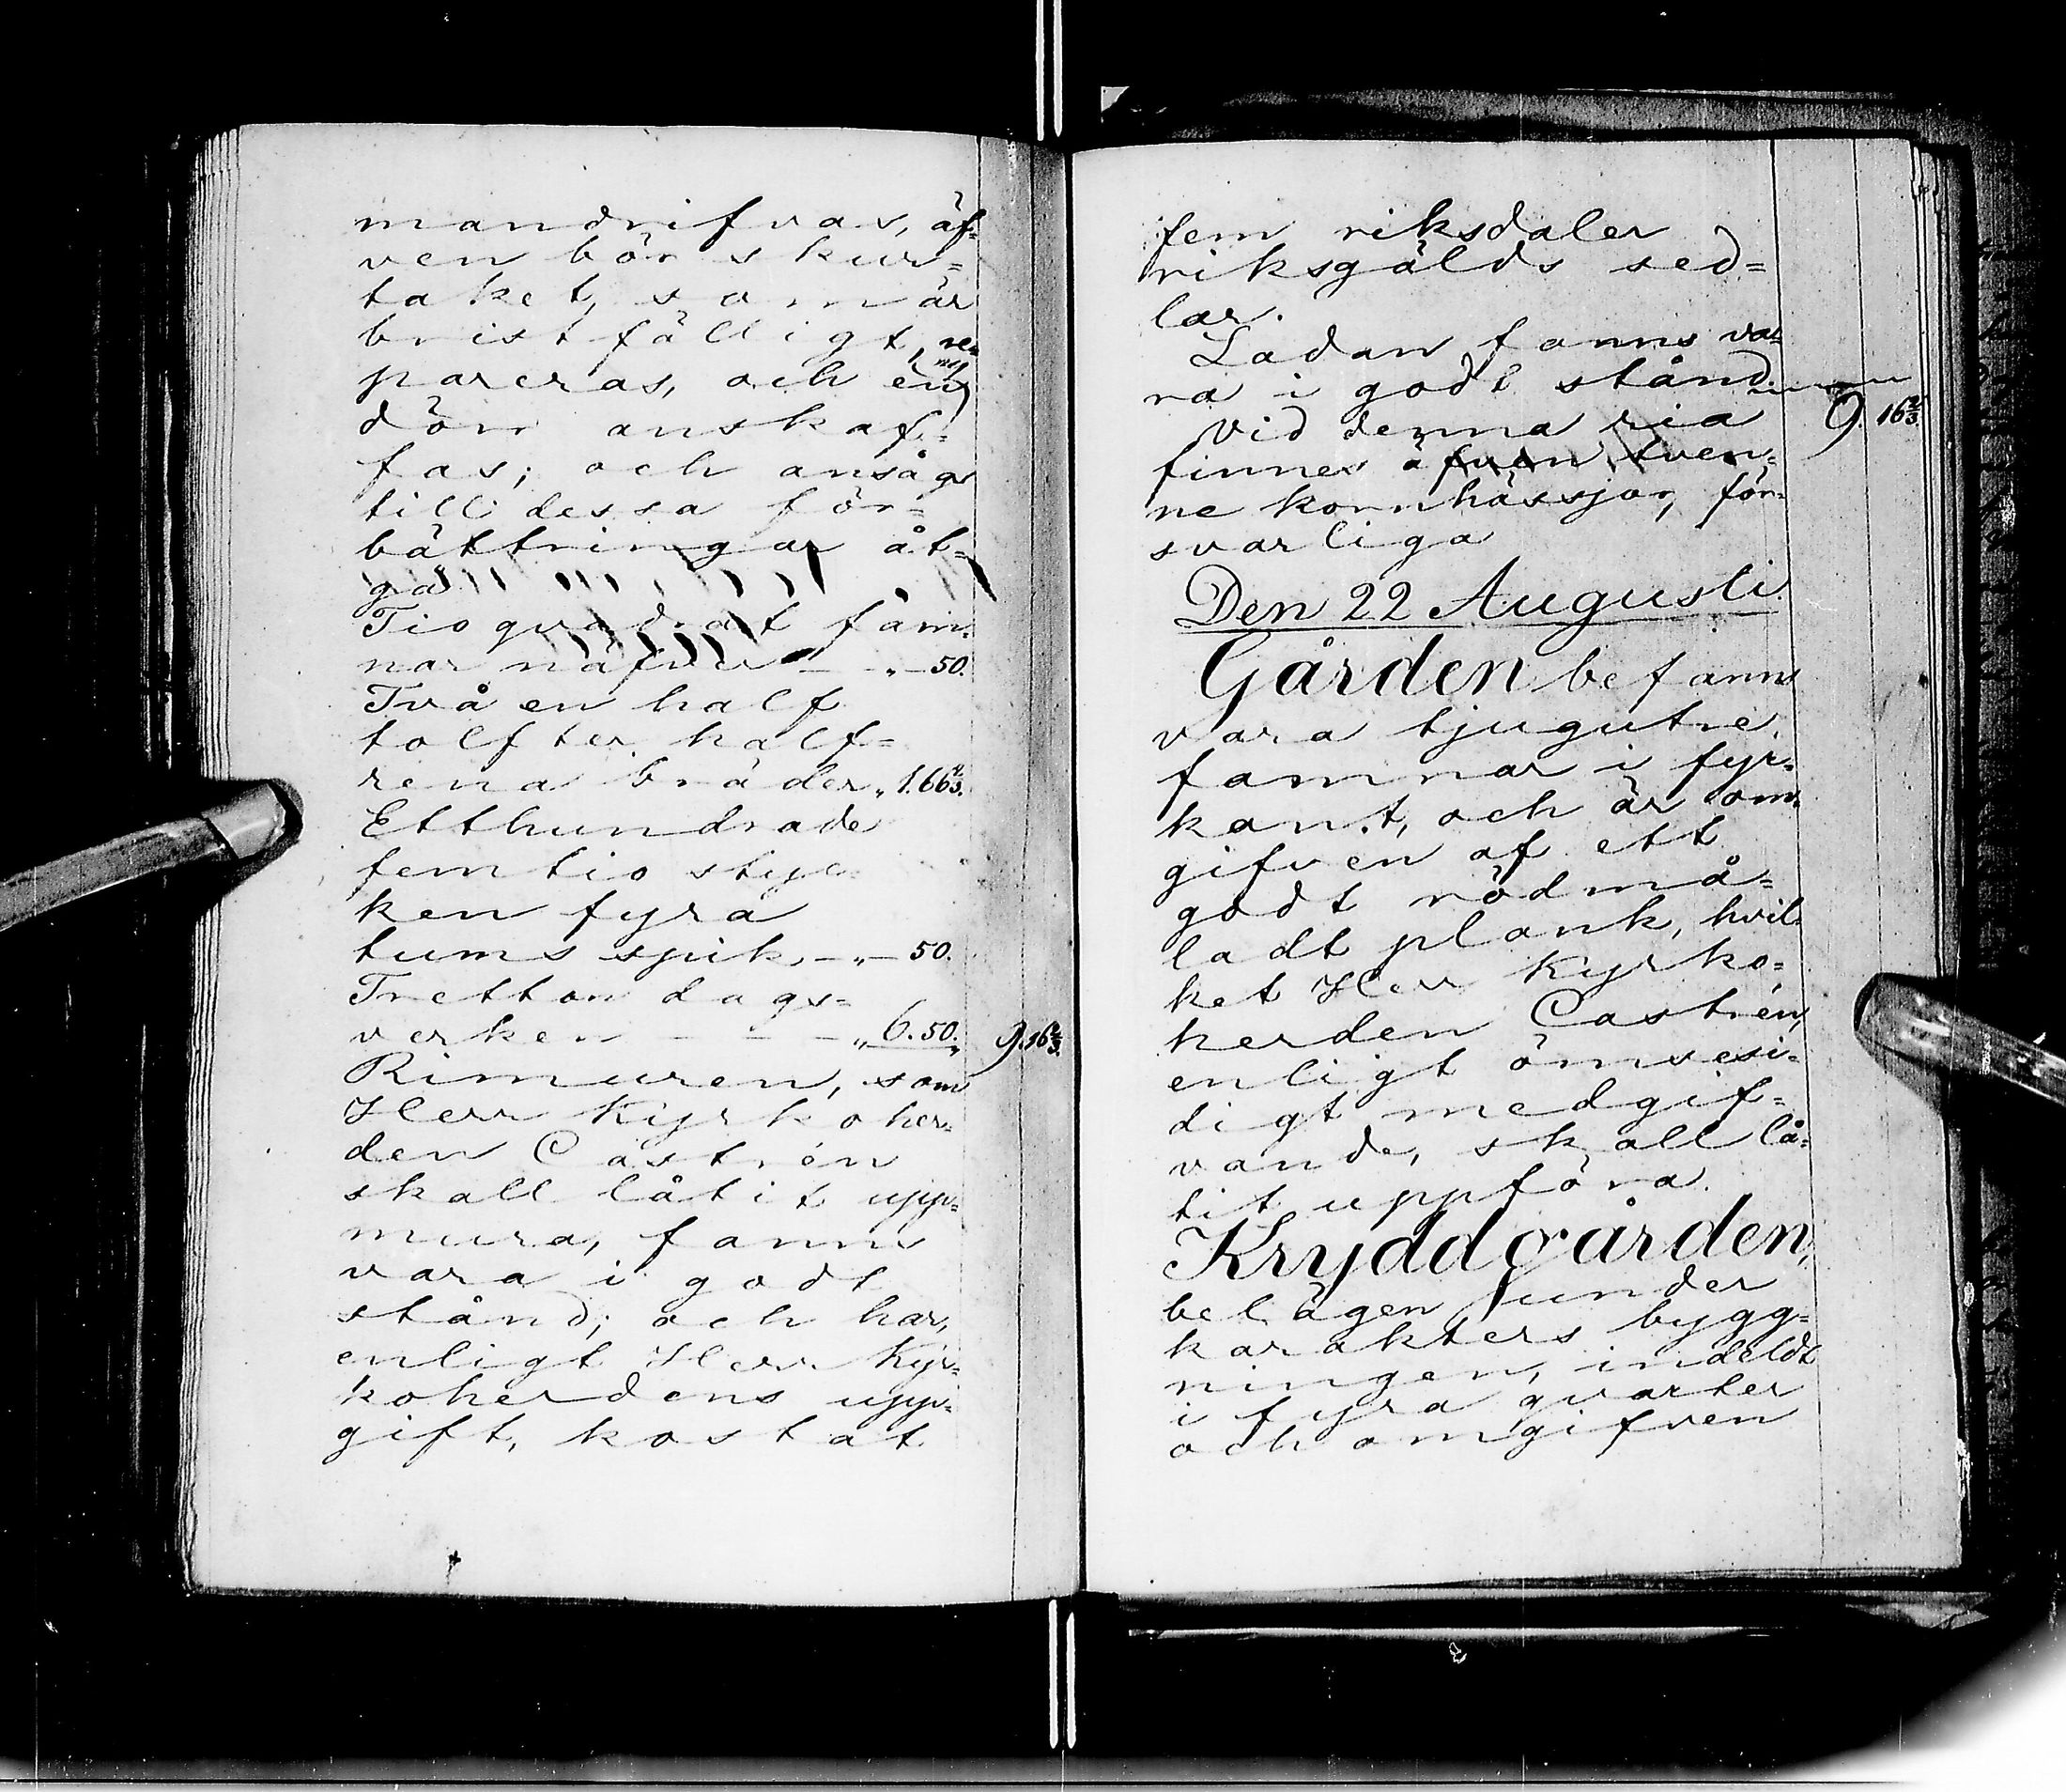 mandrifvas, äf=
ven bör skur=
taket, som är
bristfälligt, re=
pareras, och en ny
dörr anskaf=
fas; och ansågs
till dessa för=
bättringar åt=
gå
Tio qvadrat fam=
nar näfver — „ — 50.
Två en half
tolfter half=
rena bräder „ 1.66 2/3.
Etthundrade
femtio styc=
ken fyra
tums spik, — „ — 50.
Tretton dags=
verken — — — „ 6.50. „ 9.16 2/3.
Rimuren, som
Herr Kyrkoher=
den Castrén
skall låtit upp=
mura, fanns
vara i godt
stånd; och har,
enligt Herr Kyr=
koherdens upp=
gift, kostat
fem riksdaler
riksgälds sed=
lar.
Ladan fanns va=
ra i godt stånd.
Vid denna ria 9.16 2/3.
finnes äfven tven=
ne kornhässjor, för=
svarliga
Den 22 Augusti.
Gården befanns
vara tjugutre
famnar i fyr=
kant, och är om=
gifven af ett
godt rödmå=
ladt plank, hvil=
ket Herr Kyrko=
herden Castrén,
enligt ömsesi=
digt medgif=
vande, skall lå=
tit uppföra.
Kryddgården,
belägen under
karakters bygg=
ningen, indeldt
i fyra qvarter
och omgifven